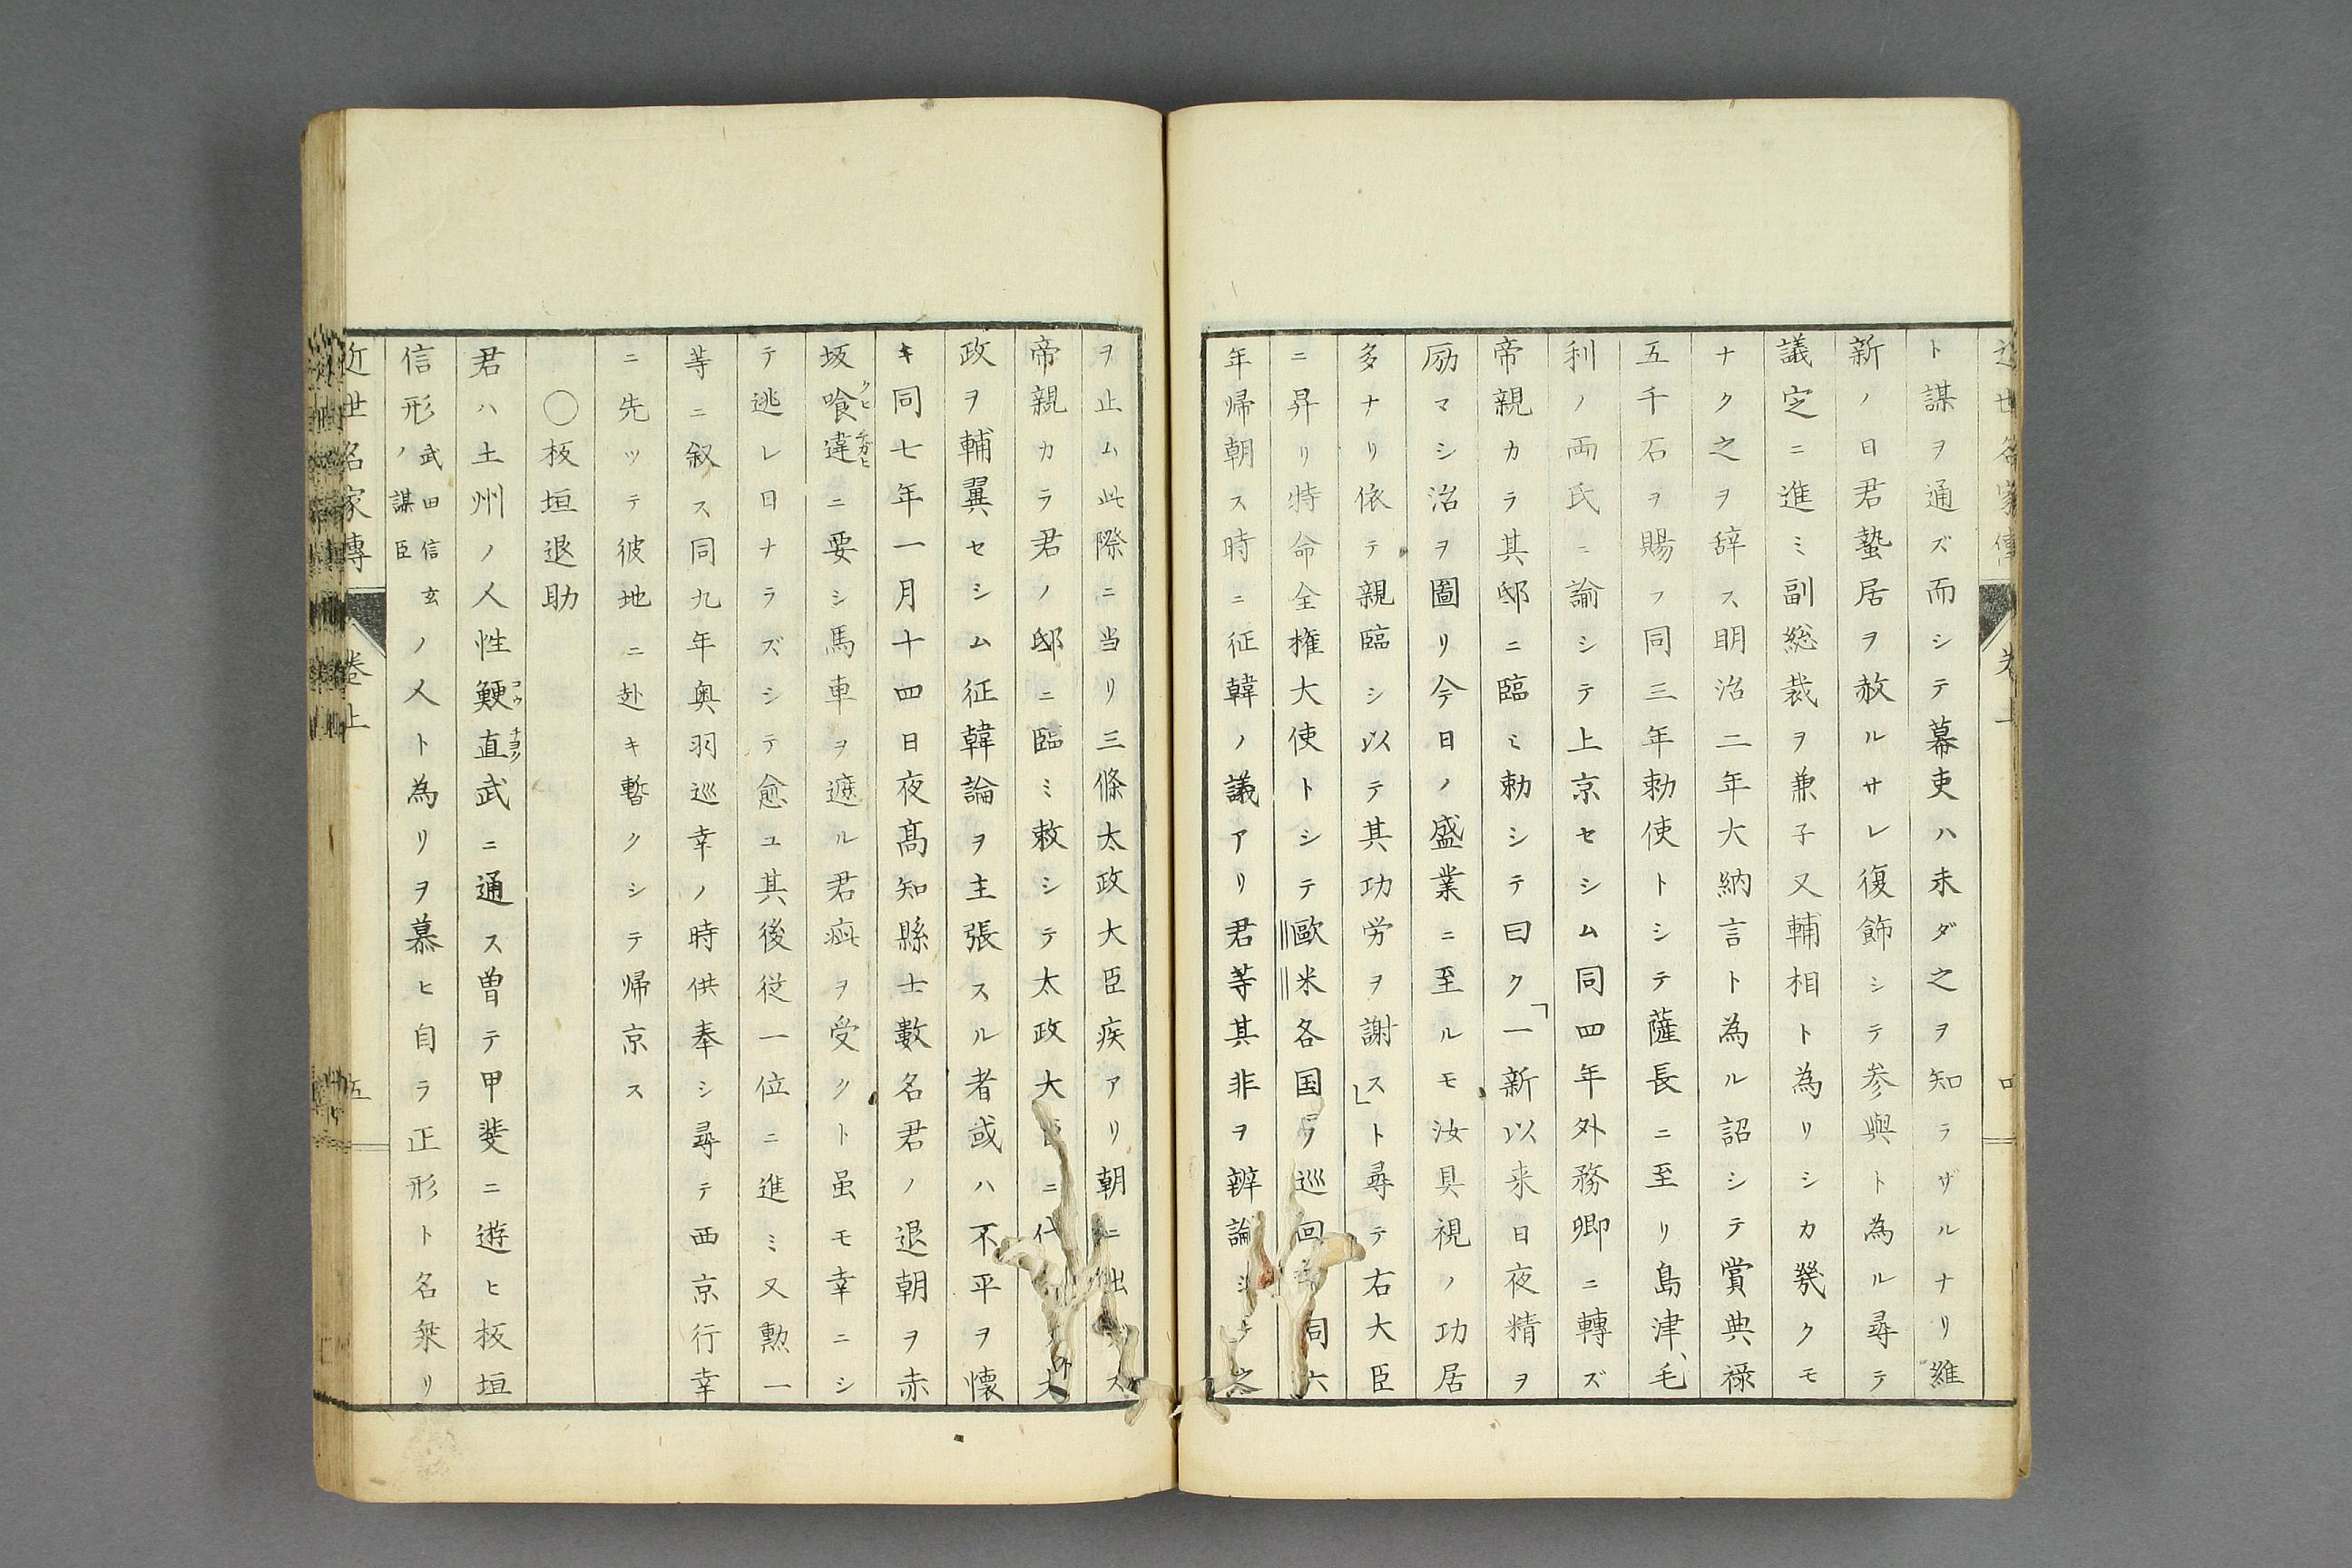 ト謀ヲ通ズ而シテ幕吏ハ未ダ之ヲ知ラザルナリ維
新ノ日君蟄居ヲ赦ルサレ復飾シテ参與ト為ル尋テ
議定ニ進ミ副総裁ヲ兼子又輔相ト為リシカ幾クモ
ナク之ヲ辞ス明治二年大納言ト為ル詔シテ賞典禄
五千石ヲ賜フ同三年勅使トシテ薩長ニ至リ島津、毛
利ノ両氏ニ諭シテ上京セシム同四年外務卿ニ轉ズ
帝親カラ其邸ニ臨ミ勅シテ曰ク「一新以来日夜精ヲ
励マシ治ヲ圖リ今日ノ盛業ニ至ルモ汝具視ノ功居
多ナリ依テ親臨シ以テ其功労ヲ謝ス」ト尋テ右大臣
ニ昇リ特命全権大使トシテ歐米各国ヲ巡回 同六
年帰朝ス時ニ征韓ノ議アリ君等其非ヲ辨論シテ之
ヲ止ム此際ニ当リ三條太政大臣疾アリ朝ニ出 ス
帝親カラ君ノ邸ニ臨ミ敕シテ太政大臣ニ代 大
政ヲ輔翼セシム征韓論ヲ主張スル者或ハ不平ヲ懐
キ同七年一月十四日夜髙知縣士數名君ノ退朝ヲ赤
坂喰違クヒチガヒニ要シ馬車ヲ遮ル君疵ヲ受クト虽モ幸ニシ
テ逃レ日ナラズシテ愈ユ其後従一位ニ進ミ又勲一
等ニ叙ス同九年奥羽巡幸ノ時供奉シ尋テ西京行幸
ニ先ツテ彼地ニ赴キ暫クシテ帰京ス
〇板垣退助
君ハ土州ノ人性鯁直コウチヨク武ニ通ス曽テ甲斐ニ遊ヒ板垣
信形武田信玄ノ謀臣ノ人ト為リヲ慕ヒ自ラ正形ト名乗リ
近世名家傳 巻上 五